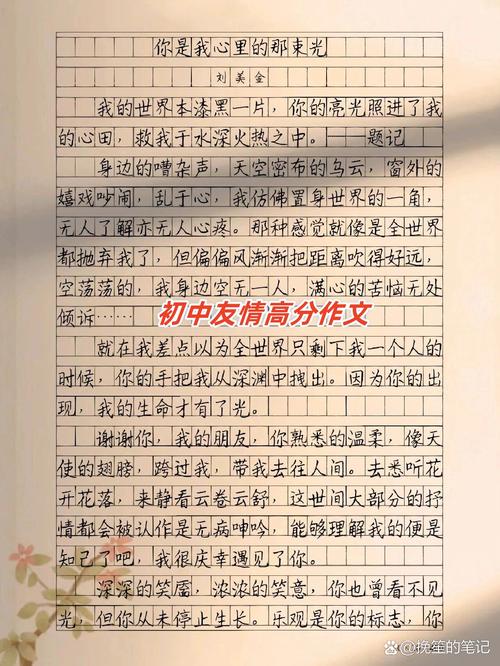 你是我心里的那束光
刘美金
我的世界本漆黑一片，你的亮光照进了我
的心田，救我于水深火热之中。——题记
身边的嘈杂声，天空密布的乌云，窗外的
嬉戏吵闹，乱于心，我仿佛置身世界的一角，
无人了解亦无人心疼。那种感觉就像是全世界
都抛弃我了，但偏偏风渐渐把距离吹得好远，
空荡荡的，我身边空无一人，满心的苦恼无处
倾诉……
初中友情高分作文
就在我差点以为全世界只剩下我一个人的
时候，你的手把我从深渊中拽出。因为你的出
现，我的生命才有了光。
谢谢你，我的朋友，你熟悉的温柔，像天
使的翅膀，跨过我，带我去往人间。去悉听花
开花落，来静看云卷云舒，这世间大部分的抒
情都会被认作是无病呻吟，能够理解我的便是
知己了吧，我很庆幸遇见了你。
深深的笑靥，浓浓的笑意，你也曾看不见
光，但你从未停止生长。乐观是你的标志，你
挽笙的笔记